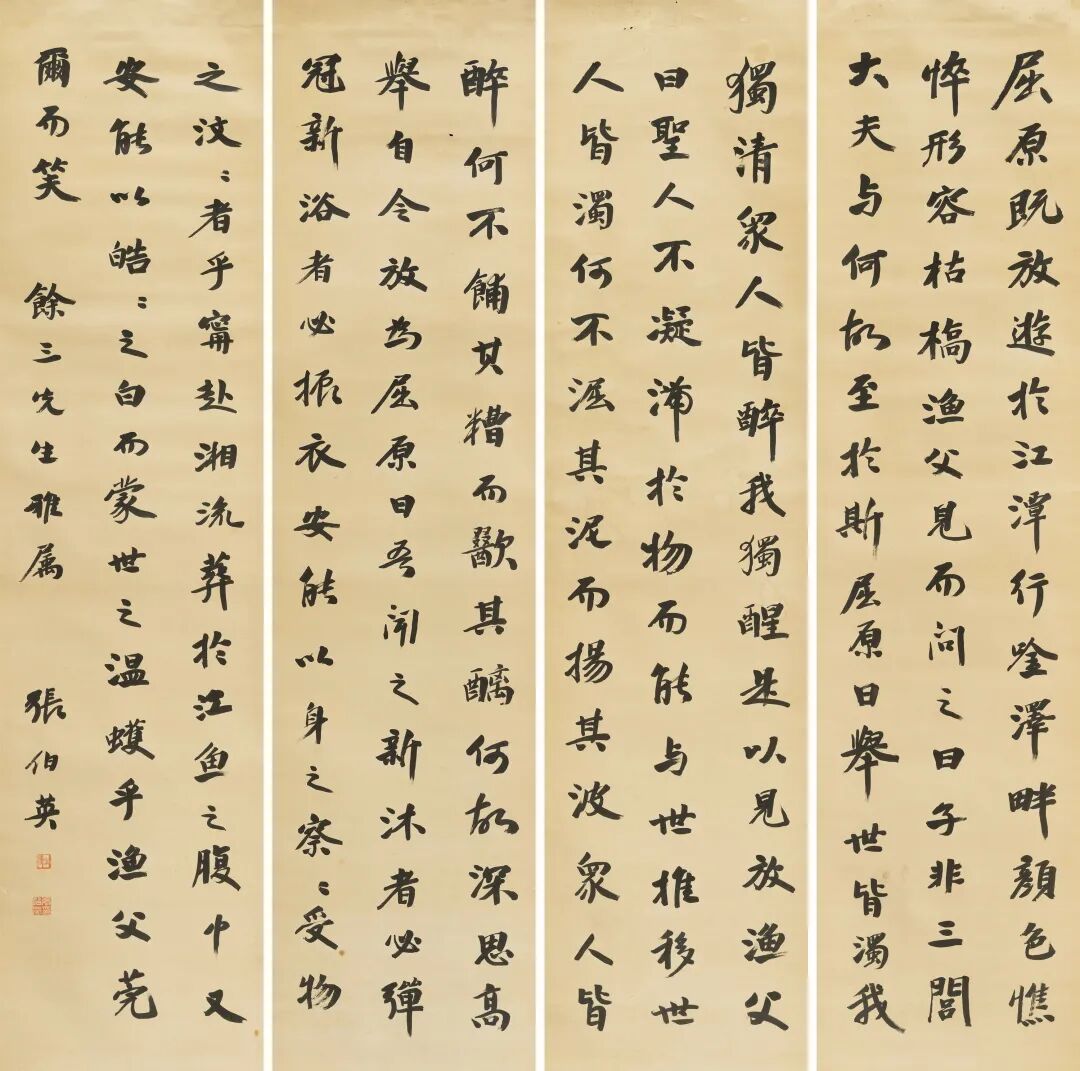 屈原既放遊於江潭行唫澤畔顔色憔
悴形容枯槁漁父見而问之曰子非三閭
大夫与何故至於斯屈原曰舉世皆濁我
獨清衆人皆醉我獨醒是以見放漁父
曰聖人不凝滯於物而能与世推移世
人皆濁何不淈其泥而揚其波衆人皆
醉何不餔其糟而歠其醨何故深思高
舉自令放為屈原曰吾聞之新沐者必彈
冠新浴者必振衣安能以身之察〻受物
之汶〻者乎甯赴湘流葬於江鱼之腹中又
安能以皓〻之白而蒙世之温蠖乎漁父莞
爾而笑 餘三先生雅属 張伯英